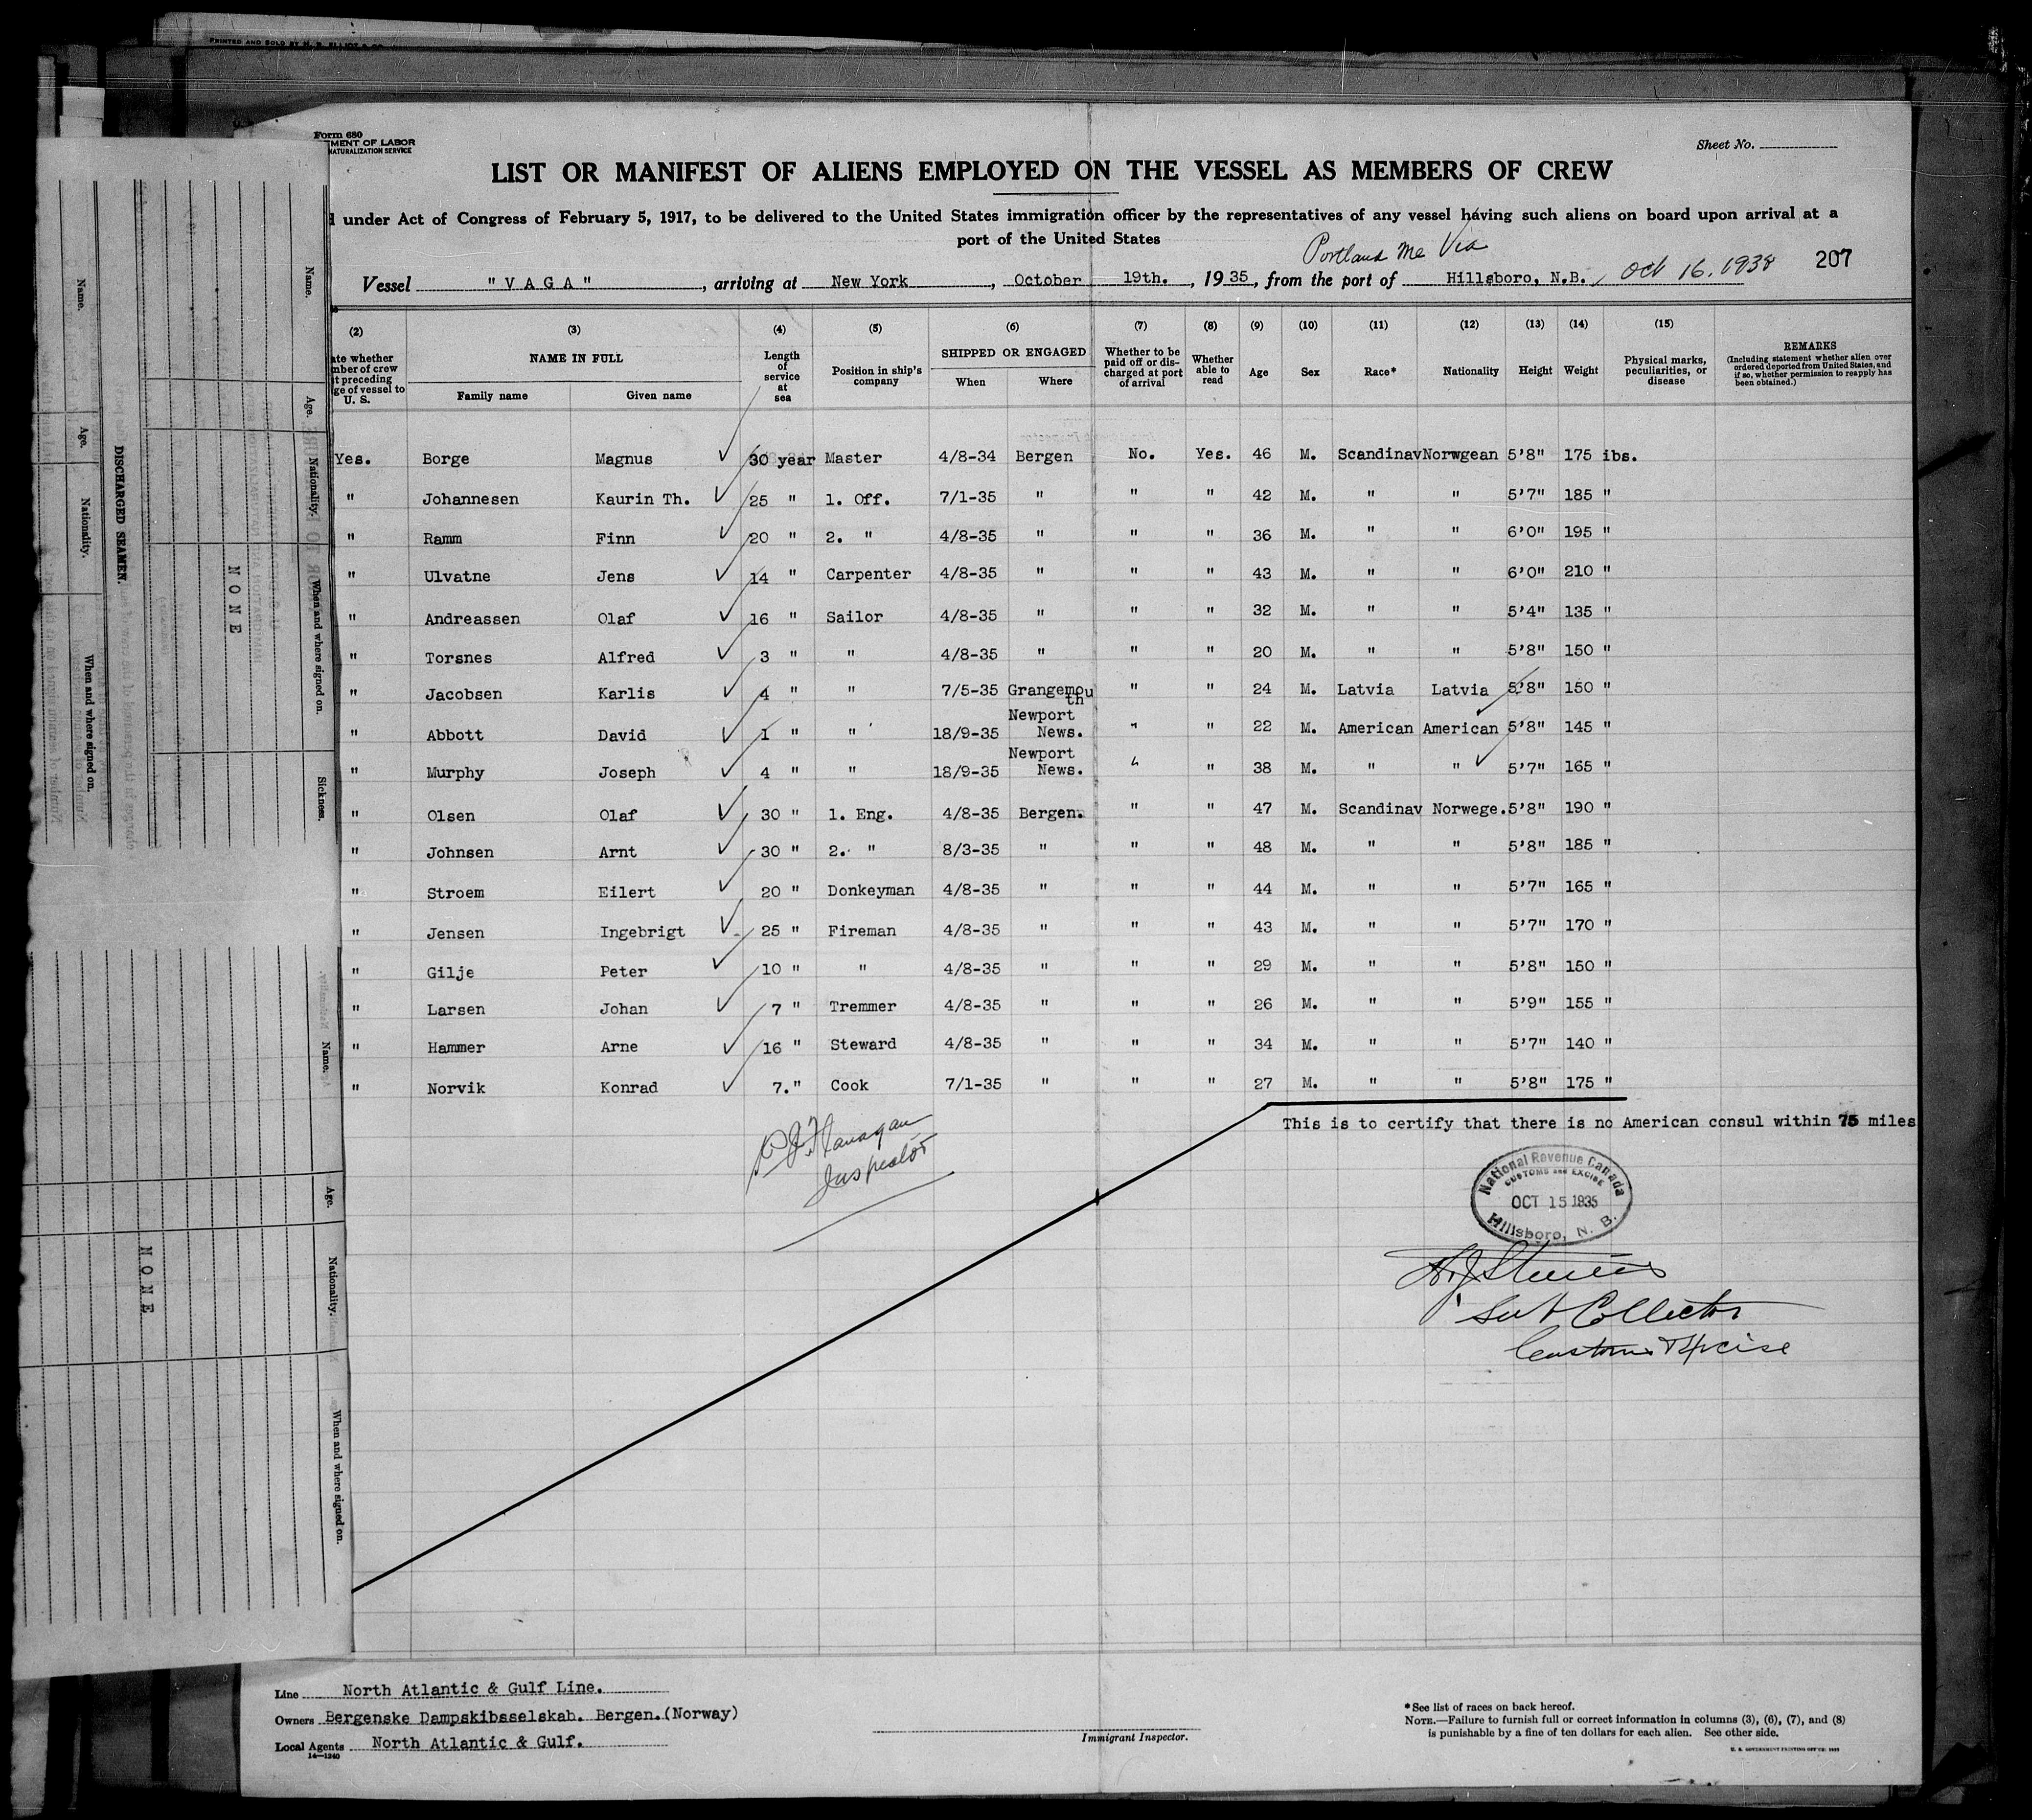 PRINTED AND SOLD BY
Form 680
MENT OF LABOR
NATURALIZATION SERVICE
Sheet No.
LIST OR MANIFEST OF ALIENS EMPLOYED ON THE VESSEL AS MEMBERS OF CREW
under Act of Congress of February 5, 1917, to be delivered to the United States immigration officer by the representatives of any vessel having such aliens on board upon arrival at a
port of the United States
Portland Me Via
Vessel "VAGA", arriving at New York, October 19th., 1935, from the port of Hillsboro, N.B., Oct 16. 1938 207
(2) (3) (4) (5) (6) (7) (8) (9) (10) (11) (12) (13) (14) (15)
ate whether
mber of crew
t preceding
ge of vessel to
U. S.
NAME IN FULL
Family name Given name
Length
of
service
at
sea
Position in ship's
company
SHIPPED OR ENGAGED
When Where
Whether to be
paid off or dis-
charged at port
of arrival
Whether
able to
read
Age Sex Race* Nationality Height Weight
Physical marks,
peculiarities, or
disease
REMARKS
(Including statement whether alien over
ordered deported from United States, and
if so, whether permission to reapply has
been obtained.)
Yes. Borge Magnus 30 year Master 4/8-34 Bergen No. Yes. 46 M. Scandinav Norwgean 5'8" 175 ibs.
" Johannesen Kaurin Th. 25 " 1. Off. 7/1-35 " " " 42 M. " " 5'7" 185 "
" Ramm Finn 20 " 2. " 4/8-35 " " " 36 M. " " 6'0" 195 "
" Ulvatne Jens 14 " Carpenter 4/8-35 " " " 43 M. " " 6'0" 210 "
" Andreassen Olaf 16 " Sailor 4/8-35 " " " 32 M. " " 5'4" 135 "
" Torsnes Alfred 3 " " 4/8-35 " " " 20 M. " " 5'8" 150 "
" Jacobsen Karlis 4 " " 7/5-35 Grangemouth " " 24 M. Latvia Latvia 5'8" 150 "
" Abbott David 1 " " 18/9-35 Newport News. " " 22 M. American American 5'8" 145 "
" Murphy Joseph 4 " " 18/9-35 Newport News. " " 38 M. " " 5'7" 165 "
" Olsen Olaf 30 " 1. Eng. 4/8-35 Bergen. " " 47 M. Scandinav Norwege. 5'8" 190 "
" Johnsen Arnt 30 " 2. " 8/3-35 " " " 48 M. " " 5'8" 185 "
" Stroem Eilert 20 " Donkeyman 4/8-35 " " " 44 M. " " 5'7" 165 "
" Jensen Ingebrigt 25 " Fireman 4/8-35 " " " 43 M. " " 5'7" 170 "
" Gilje Peter 10 " " 4/8-35 " " " 29 M. " " 5'8" 150 "
" Larsen Johan 7 " Tremmer 4/8-35 " " " 26 M. " " 5'9" 155 "
" Hammer Arne 16 " Steward 4/8-35 " " " 34 M. " " 5'7" 140 "
" Norvik Konrad 7. " Cook 7/1-35 " " " 27 M. " " 5'8" 175 "
This is to certify that there is no American consul within 75 miles
Flanagan
Inspector
National Revenue Canada
CUSTOMS and EXCISE
OCT 15 1935
Hillsboro, N. B.
Sub Collector
Customs & Excise
Line North Atlantic & Gulf Line.
Owners Bergenske Dampskibsselskab. Bergen.(Norway)
Local Agents North Atlantic & Gulf.
14—1240
Immigrant Inspector.
*See list of races on back hereof.
NOTE.—Failure to furnish full or correct information in columns (3), (6), (7), and (8)
is punishable by a fine of ten dollars for each alien. See other side.
Name. Age. Nationality. When and where signed on.
DISCHARGED SEAMEN.
NONE
Name. Age. Nationality. When and where signed on. Sickness.
NONE
Name. Age. Nationality. When and where signed on.